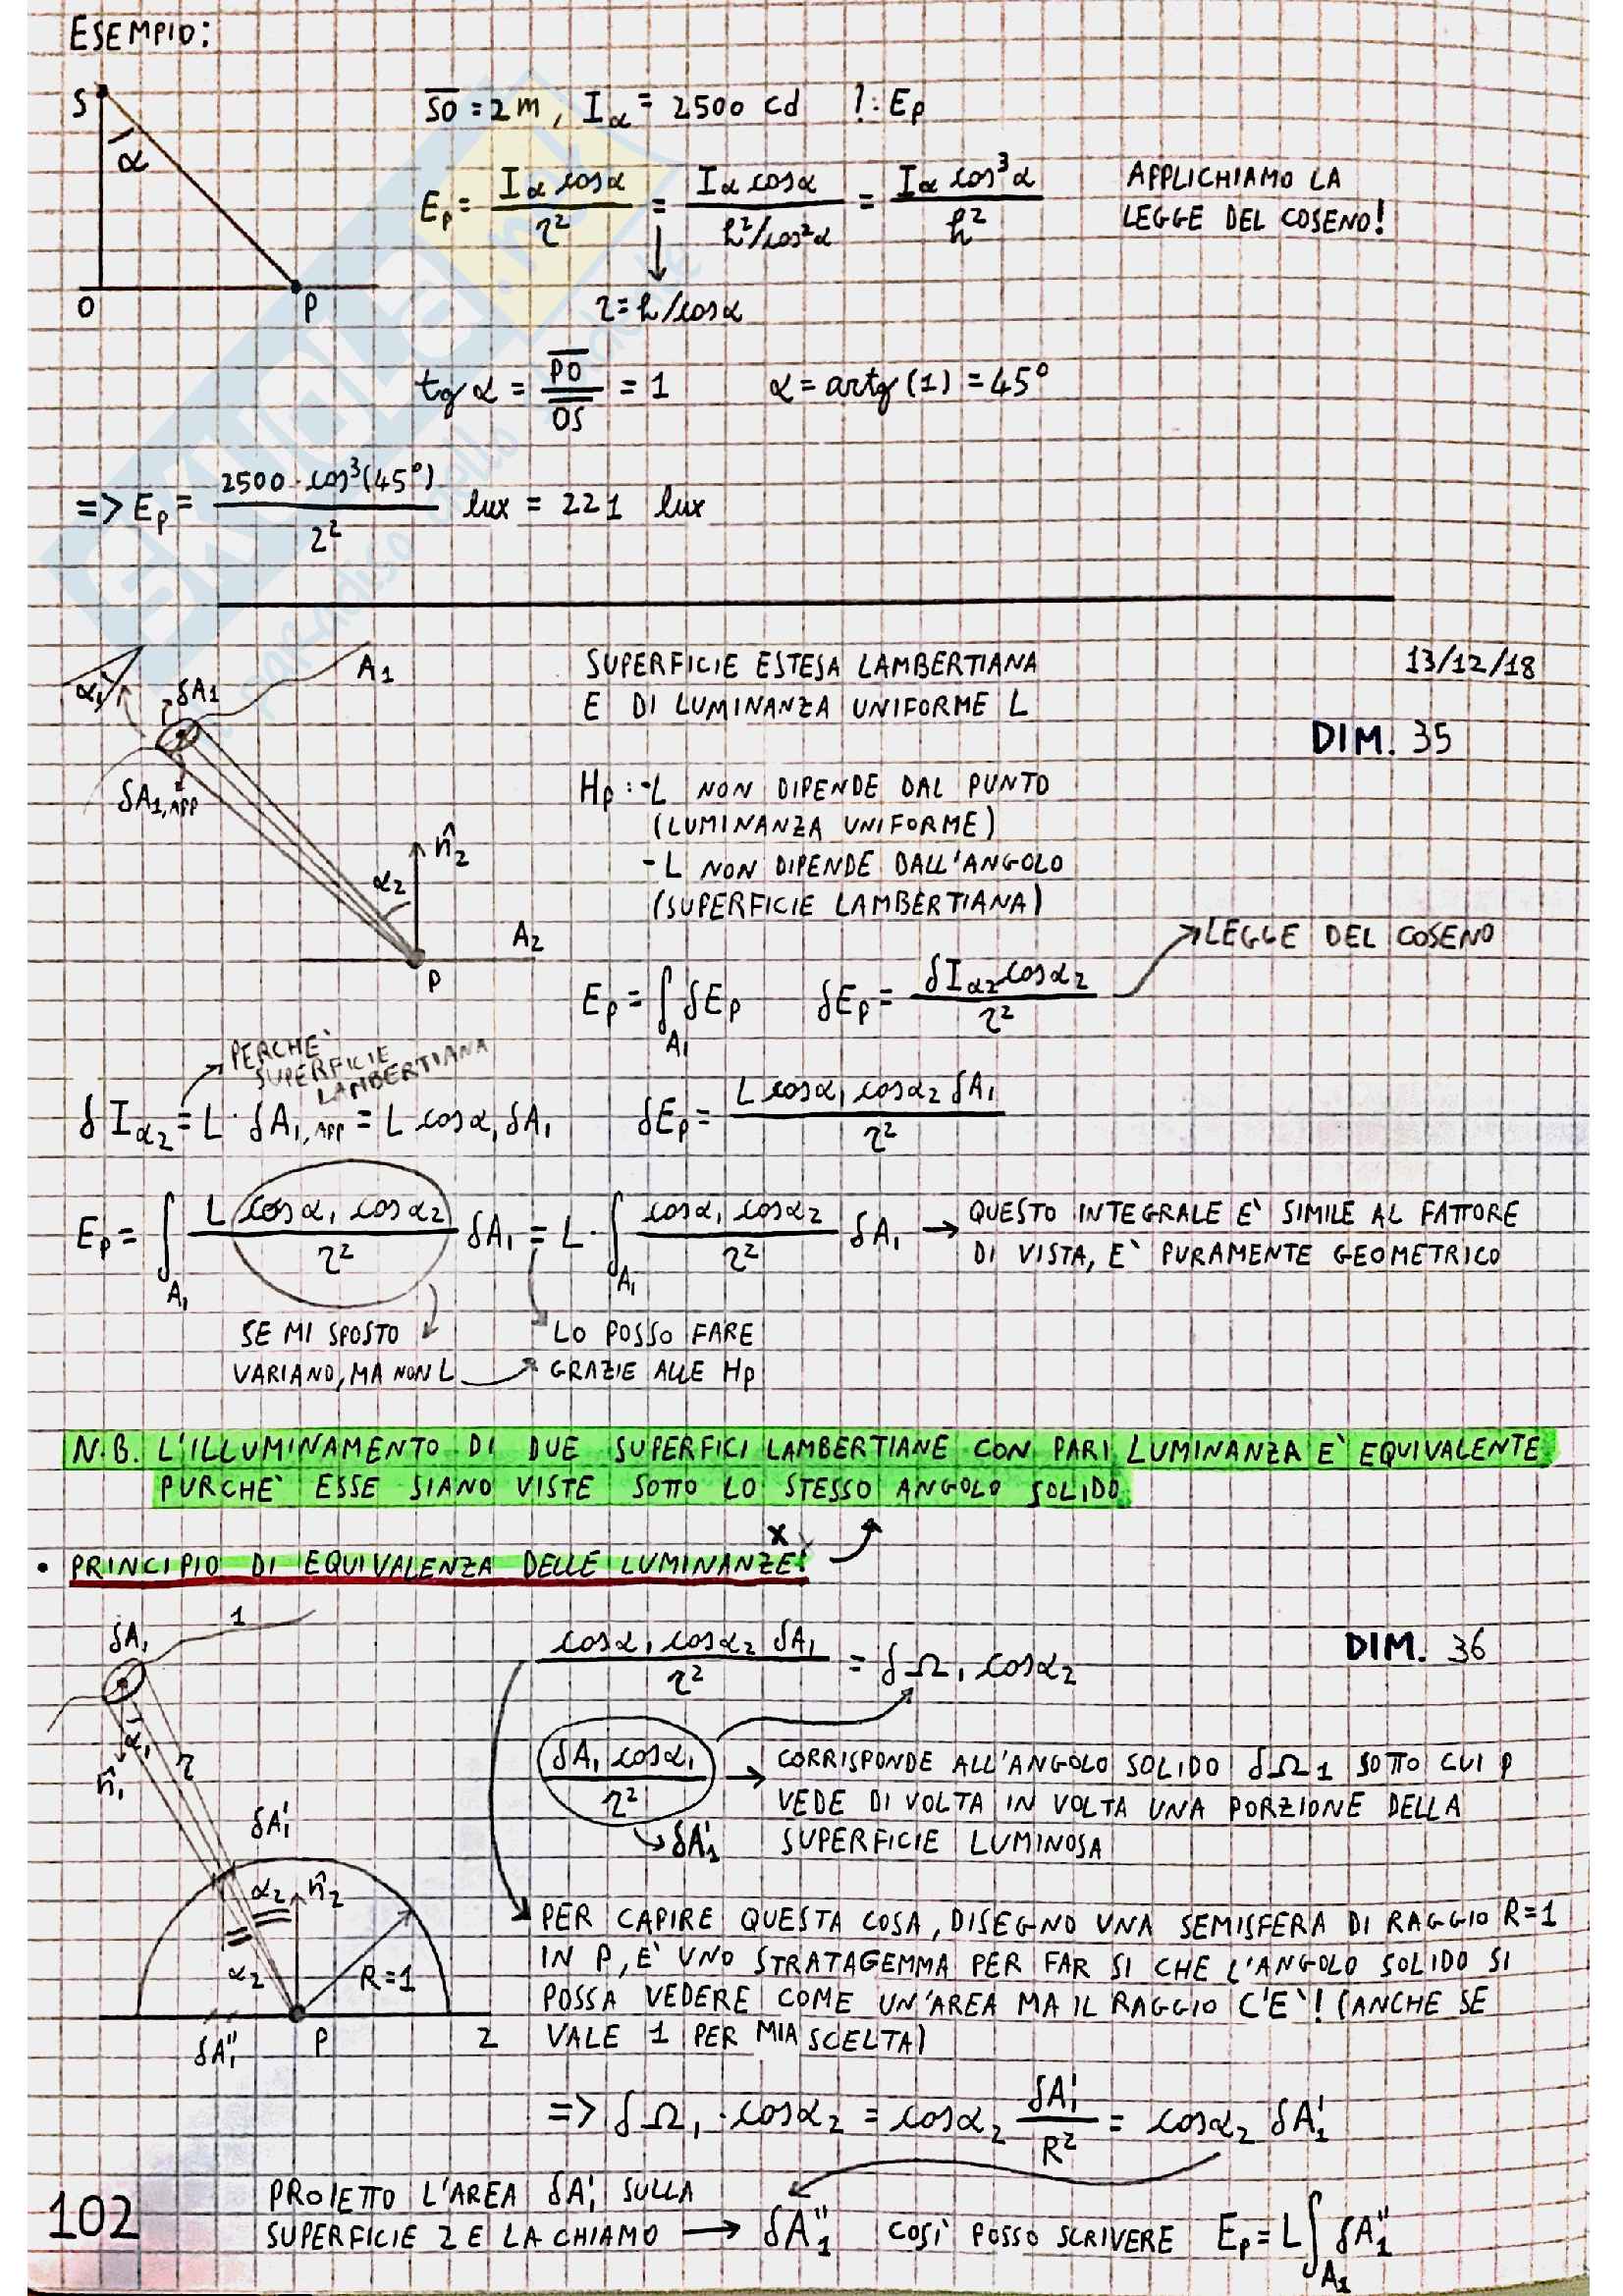 ESEMPIO:
S
α
O
P
SO = 2 m , Iα = 2500 cd ?: Ep
Ep = Iα cosα / r² = Iα cosα / h²/cos²α = Iα cos³α / h²
APPLICHIAMO LA
LEGGE DEL COSENO!
r = h/cosα
tg α = PO / OS = 1 α = artg (1) = 45°
=> Ep = 2500 · cos³(45°) / 2² lux = 221 lux
A1
α1
δA1
δA1,APP
n̂2
α2
A2
P
SUPERFICIE ESTESA LAMBERTIANA
E DI LUMINANZA UNIFORME L
13/12/18
DIM. 35
Hp: - L NON DIPENDE DAL PUNTO
(LUMINANZA UNIFORME)
- L NON DIPENDE DALL'ANGOLO
(SUPERFICIE LAMBERTIANA)
LEGGE DEL COSENO
Ep = ∫A1 δEp δEp = δIα2 cosα2 / r²
PERCHE'
SUPERFICIE
LAMBERTIANA
δIα2 = L · δA1,APP = L cosα1 δA1 δEp = L cosα1 cosα2 δA1 / r²
Ep = ∫A1 L cosα1 cosα2 / r² δA1 = L · ∫A1 cosα1 cosα2 / r² δA1 → QUESTO INTEGRALE E' SIMILE AL FATTORE
DI VISTA, E' PURAMENTE GEOMETRICO
SE MI SPOSTO
VARIANO, MA NON L
LO POSSO FARE
GRAZIE ALLE Hp
N.B. L'ILLUMINAMENTO DI DUE SUPERFICI LAMBERTIANE CON PARI LUMINANZA E' EQUIVALENTE
PURCHE' ESSE SIANO VISTE SOTTO LO STESSO ANGOLO SOLIDO
x
• PRINCIPIO DI EQUIVALENZA DELLE LUMINANZE!
δA1
1
α1
n̂1
r
δA1'
α2
n̂2
α2
R=1
δA1''
P
2
cosα1 cosα2 δA1 / r² = δΩ1 cosα2
DIM. 36
δA1 cosα1 / r² → CORRISPONDE ALL'ANGOLO SOLIDO δΩ1 SOTTO CUI P
VEDE DI VOLTA IN VOLTA UNA PORZIONE DELLA
↳ δA1' SUPERFICIE LUMINOSA
PER CAPIRE QUESTA COSA, DISEGNO UNA SEMISFERA DI RAGGIO R=1
IN P, E' UNO STRATAGEMMA PER FAR SI CHE L'ANGOLO SOLIDO SI
POSSA VEDERE COME UN'AREA MA IL RAGGIO C'E'! (ANCHE SE
VALE 1 PER MIA SCELTA)
=> δΩ1 · cosα2 = cosα2 δA1' / R² = cosα2 δA1'
102
PROIETTO L'AREA δA1' SULLA
SUPERFICIE 2 E LA CHIAMO → δA1'' COSI' POSSO SCRIVERE Ep = L ∫A1 δA1''